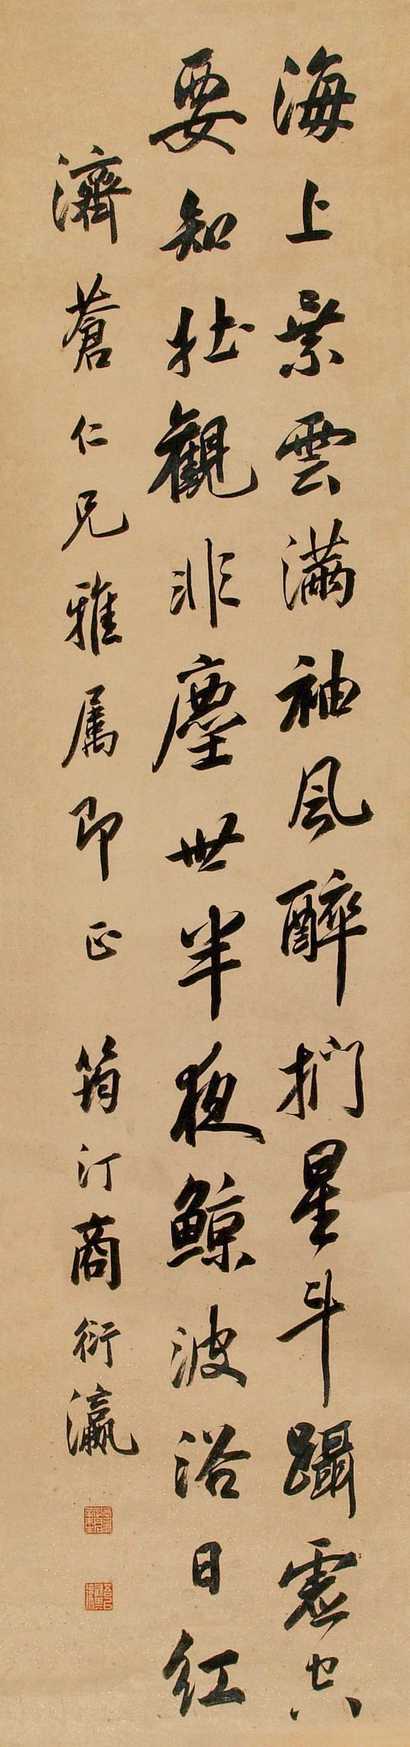 海上業雲滿袖風醉捫星斗躡虛空
要知壯觀非塵世半夜鯨波浴日紅
濟蒼仁兄雅属即正 筠汀商衍瀛